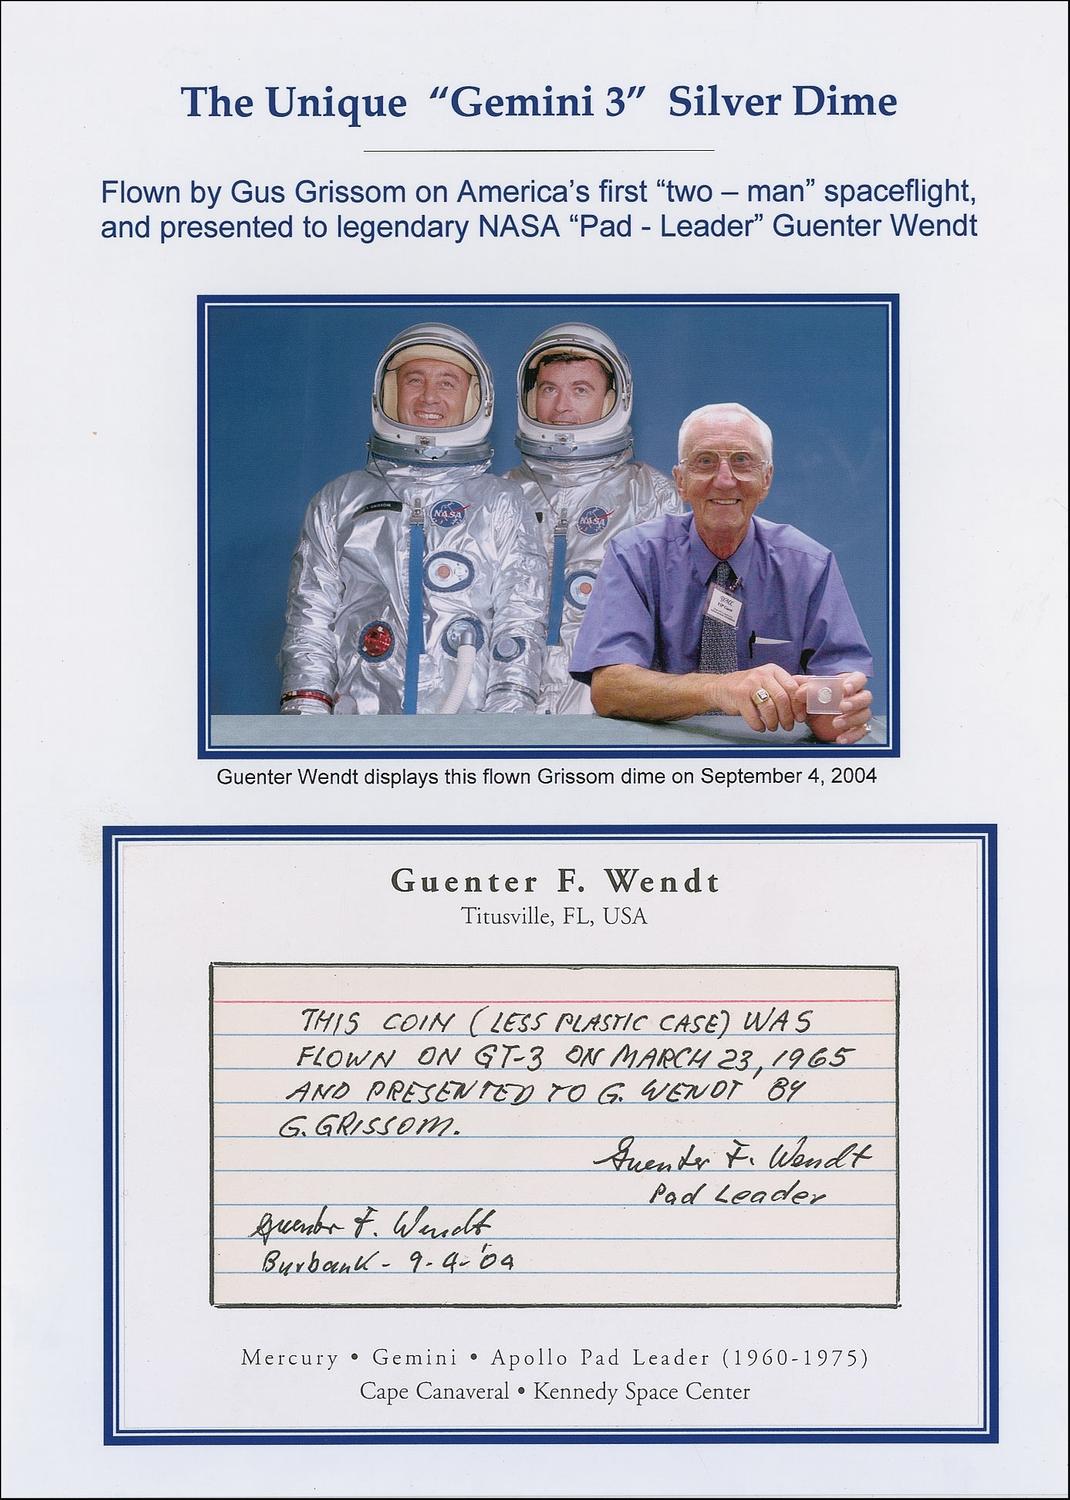 The Unique “Gemini 3” Silver Dime
Flown by Gus Grissom on America’s first “two – man” spaceflight,
and presented to legendary NASA “Pad - Leader” Guenter Wendt
GRISSOM
NASA
NASA
Guenter Wendt displays this flown Grissom dime on September 4, 2004
Guenter F. Wendt
Titusville, FL, USA
THIS COIN (LESS PLASTIC CASE) WAS
FLOWN ON GT-3 ON MARCH 23, 1965
AND PRESENTED TO G. WENDT BY
G. GRISSOM.
Guenter F. Wendt
Pad Leader
Guenter F. Wendt
Burbank - 9-4-'04
Mercury • Gemini • Apollo Pad Leader (1960-1975)
Cape Canaveral • Kennedy Space Center